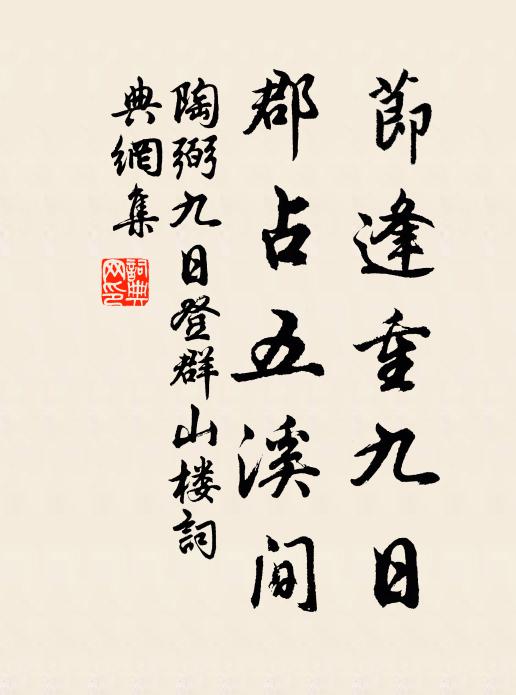 節逢重九日
郡占五溪間
陶弼九日登群山楼詞
典網集
詞典
网印